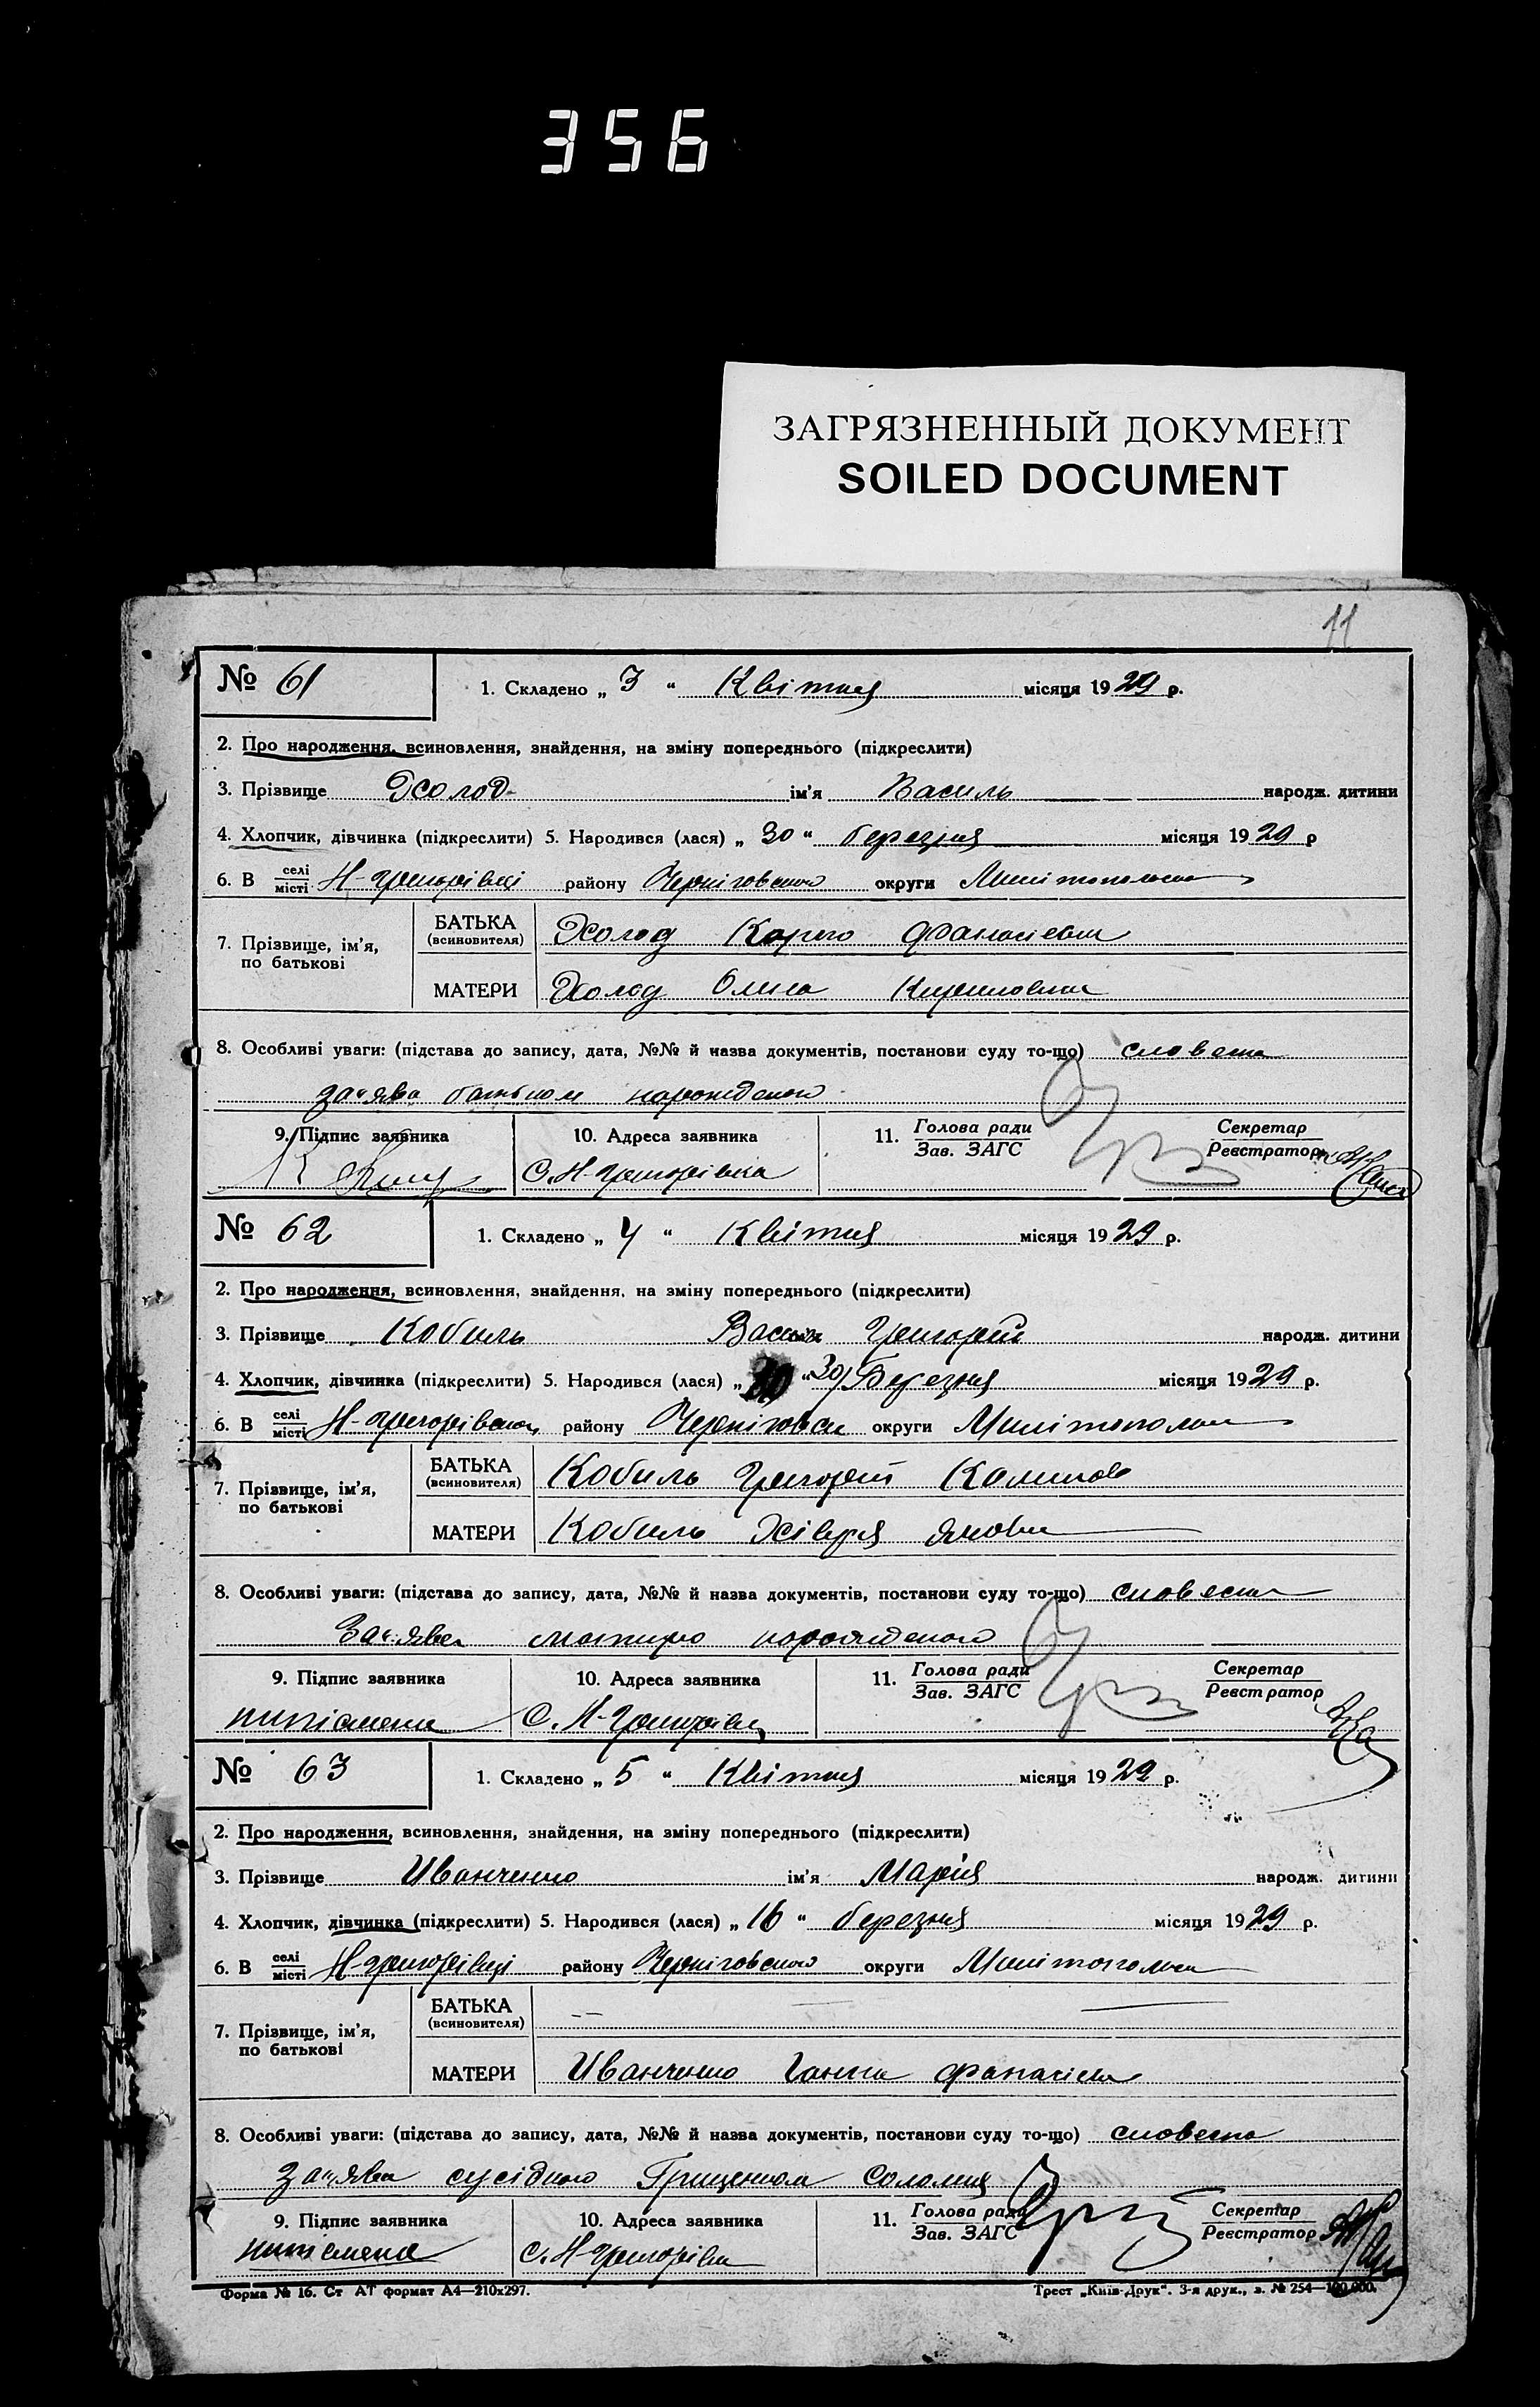 356
ЗАГРЯЗНЕННЫЙ ДОКУМЕНТ
SOILED DOCUMENT
11
№ 61 1. Складено „ 3 “ Квітня місяця 1929 р.
2. Про народження, всиновлення, знайдення, на зміну попереднього (підкреслити)
3. Прізвище Холод ім'я Василь народж. дитини
4. Хлопчик, дівчинка (підкреслити) 5. Народився (лася) „ 30 “ березня місяця 1929 р
6. В селі місті Н-Григорівці району Черніговского округи Милітопольск
7. Прізвище, ім'я, по батькові БАТЬКА (всиновителя) Холод Карпо
МАТЕРИ Холод
8. Особливі уваги: (підстава до запису, дата, №№ й назва документів, постанови суду то-що) словесна
заява батьком народженого
9. Підпис заявника 10. Адреса заявника 11. Голова ради Зав. ЗАГС Секретар Реєстратор
С. Н-Григорівка
№ 62 1. Складено „ 4 “ Квітня місяця 1929 р.
2. Про народження, всиновлення, знайдення, на зміну попереднього (підкреслити)
3. Прізвище Кобиль Григорій народж. дитини
4. Хлопчик, дівчинка (підкреслити) 5. Народився (лася) „ 30 “ 30/ Березня місяця 1929 р.
6. В селі місті району Черніговск округи Милітопольск
7. Прізвище, ім'я, по батькові БАТЬКА (всиновителя) Кобиль Григорій
МАТЕРИ Кобиль Хівря Яковл
8. Особливі уваги: (підстава до запису, дата, №№ й назва документів, постанови суду то-що) словесна
Заява матирю народженого
9. Підпис заявника 10. Адреса заявника 11. Голова ради Зав. ЗАГС Секретар Реєстратор
С. Н-Григорівц
№ 63 1. Складено „ 5 “ Квітня місяця 1929 р.
2. Про народження, всиновлення, знайдення, на зміну попереднього (підкреслити)
3. Прізвище Иванченко ім'я Марія народж. дитини
4. Хлопчик, дівчинка (підкреслити) 5. Народився (лася) „ 16 “ березня місяця 1929 р.
6. В селі місті Н-Григорівці району Черніговского округи Милітопольск
7. Прізвище, ім'я, по батькові БАТЬКА (всиновителя) —
МАТЕРИ Иванченко Ганна
8. Особливі уваги: (підстава до запису, дата, №№ й назва документів, постанови суду то-що) словесна
заява Грищенком Соломия
9. Підпис заявника 10. Адреса заявника 11. Голова ради Зав. ЗАГС Секретар Реєстратор
с. Н-Григорівк
Форма № 16. Ст АТ формат А4—210х297. Трест „Київ-Друк“. 3-я друк., з. № 254—100.000.